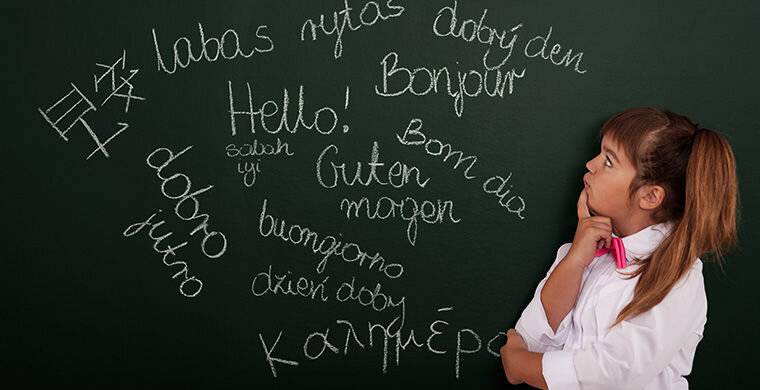 labas rytas
dobrý den
Bonjour
Hello!
sabah
iyi
Guten
morgen
Bom dia
dobro
jutro
buongiorno
dzień doby
καλημέρα